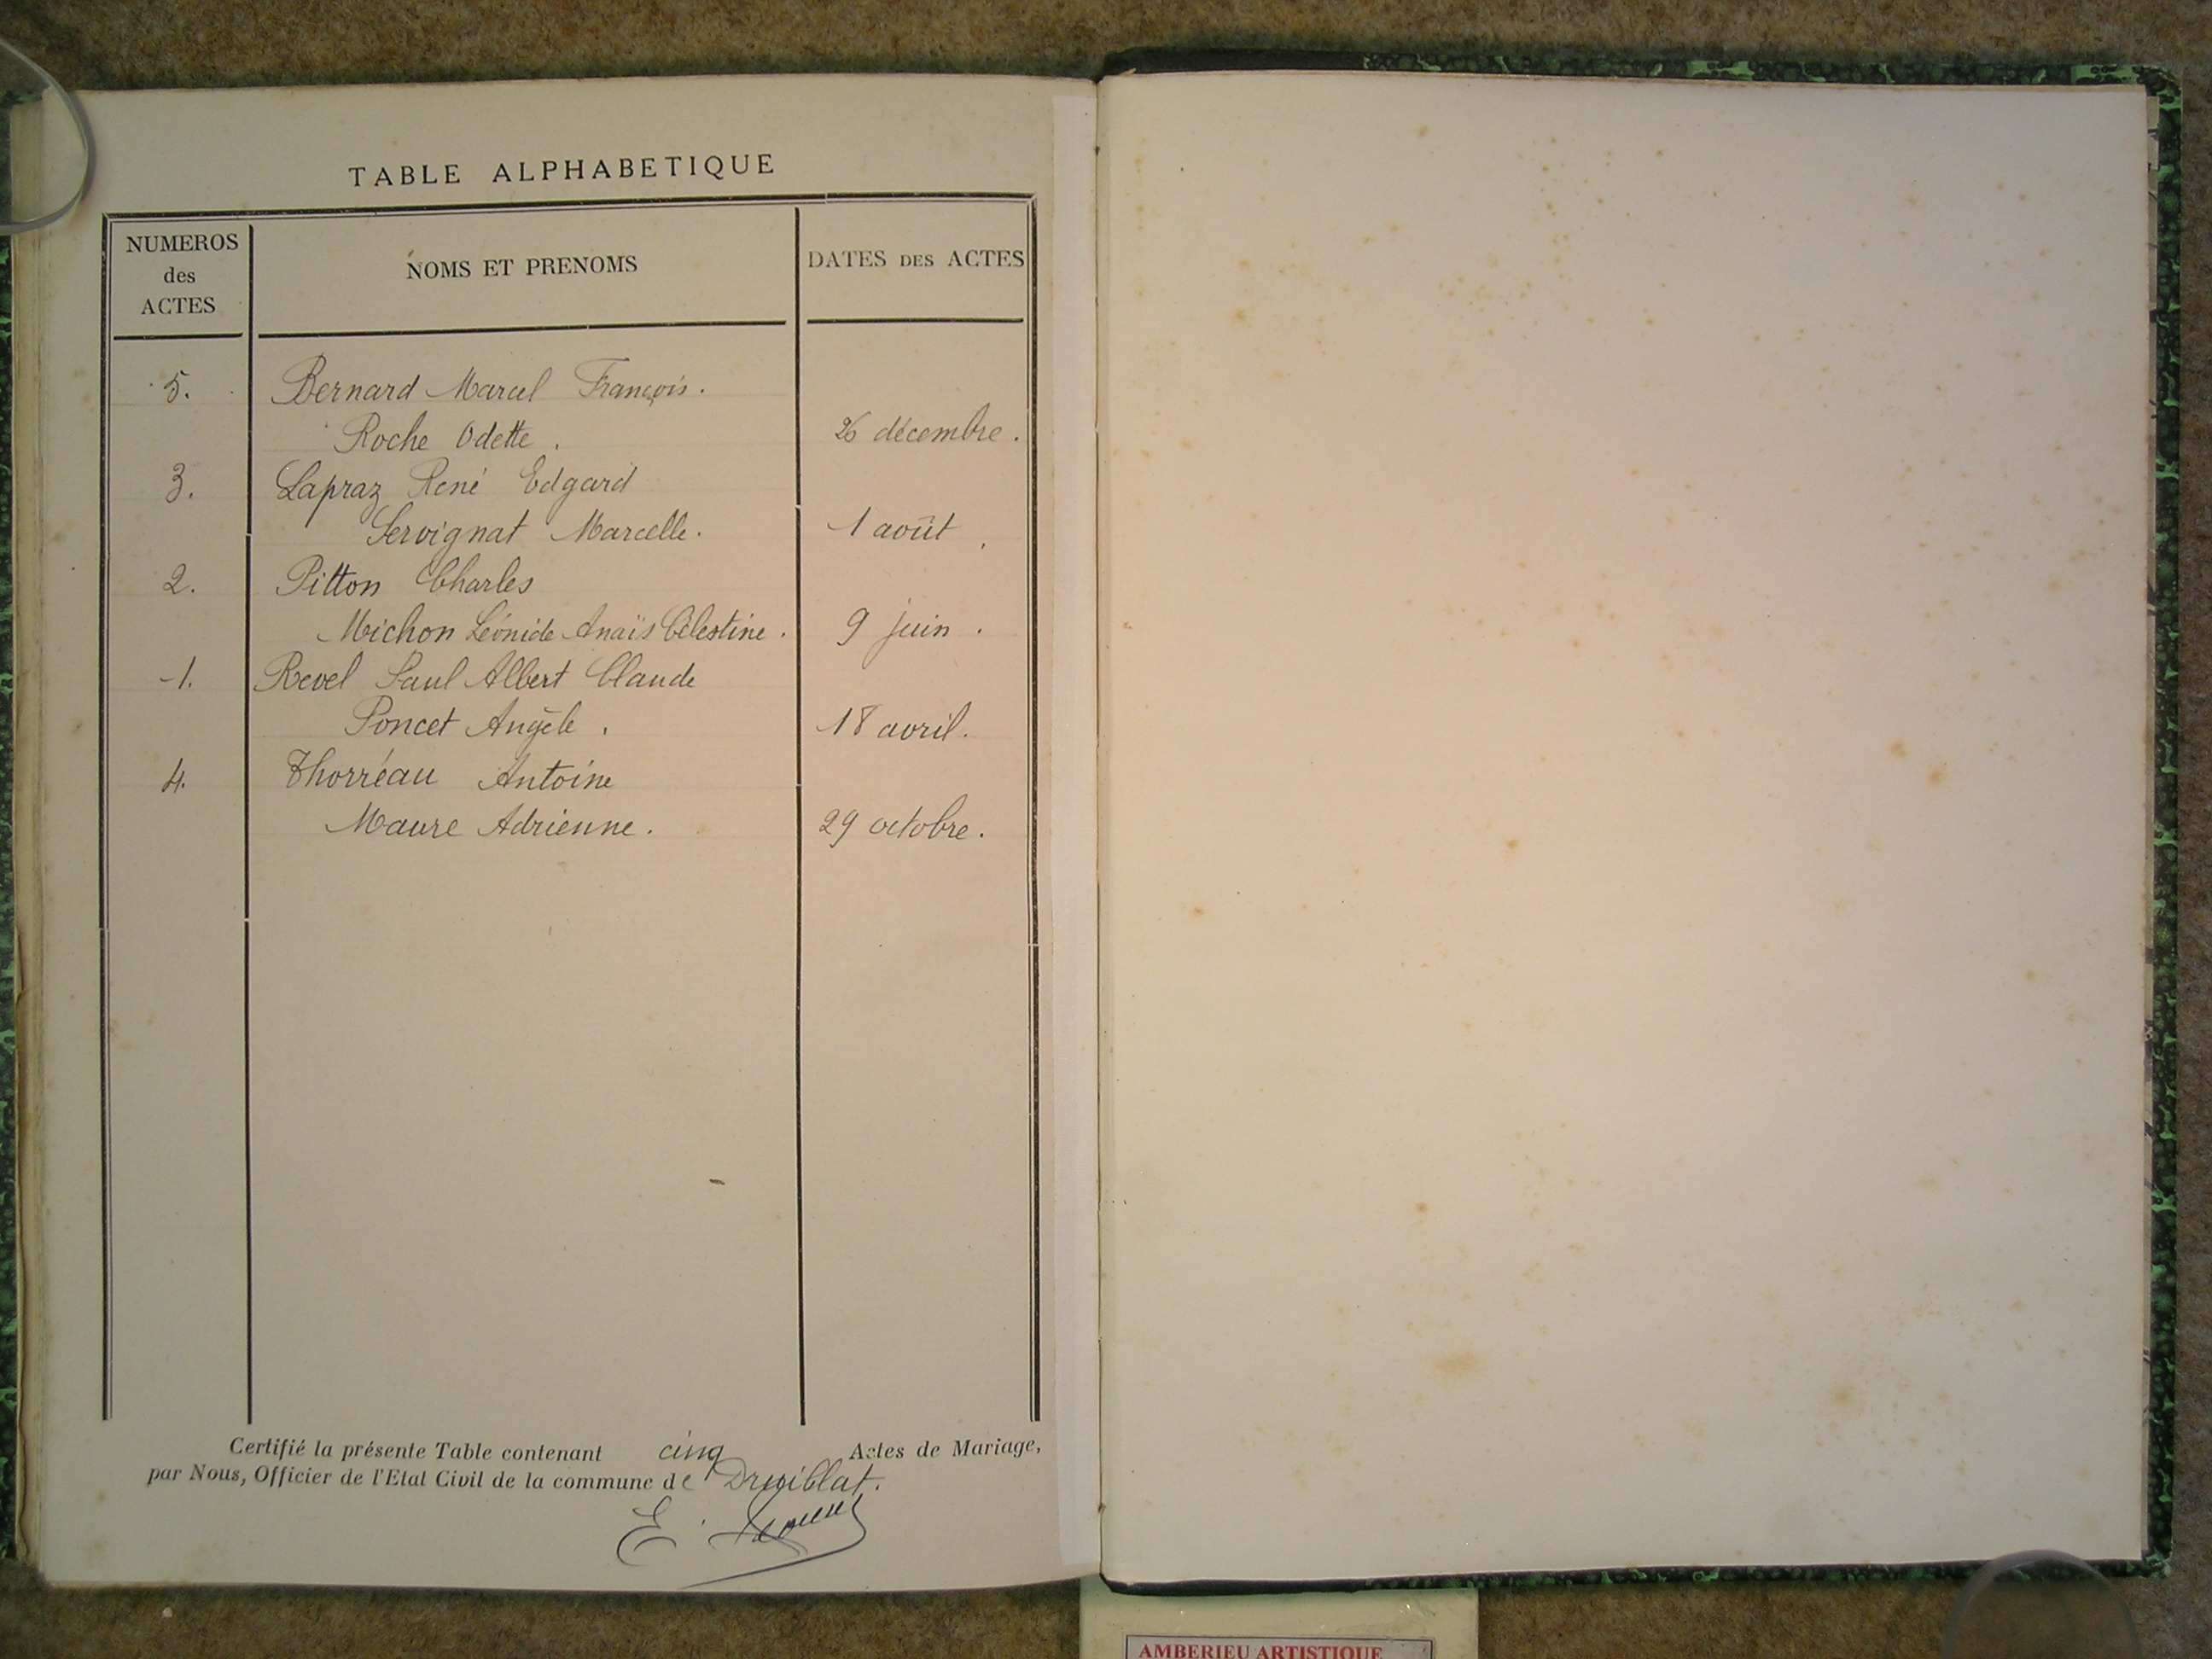 TABLE ALPHABETIQUE
NUMEROS
des
ACTES
NOMS ET PRENOMS
DATES DES ACTES
5. Bernard Marcel François.
Roche Odette. 26 décembre.
3. Lapraz René Edgard
Servignat Marcelle. 1 août.
2. Pitton Charles
Michon Léonide Anaïs Célestine. 9 juin.
1. Revel Paul Albert Claude
Poncet Angèle. 18 avril.
4. Thorréau Antoine
Maure Adrienne. 29 octobre.
Certifié la présente Table contenant cinq Actes de Mariage,
par Nous, Officier de l'Etat Civil de la commune de Druillat.
E.
AMBERIEU ARTISTIQUE